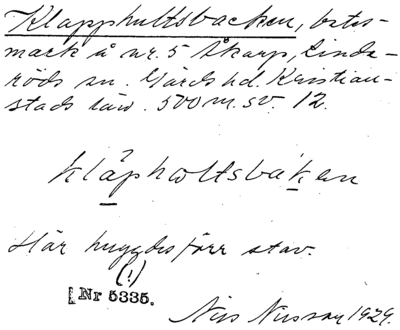 Klapphultsbacken, betes-
mark å nr. 5 Åkarp, Linde-
röds sn. Gärds hd. Kristian-
stads län. 500 m. sv. 12.
klåpholtsbaken
Här huggdes förr stav.
(!)
[Nr 5335.
Nils Nilsson 1929.